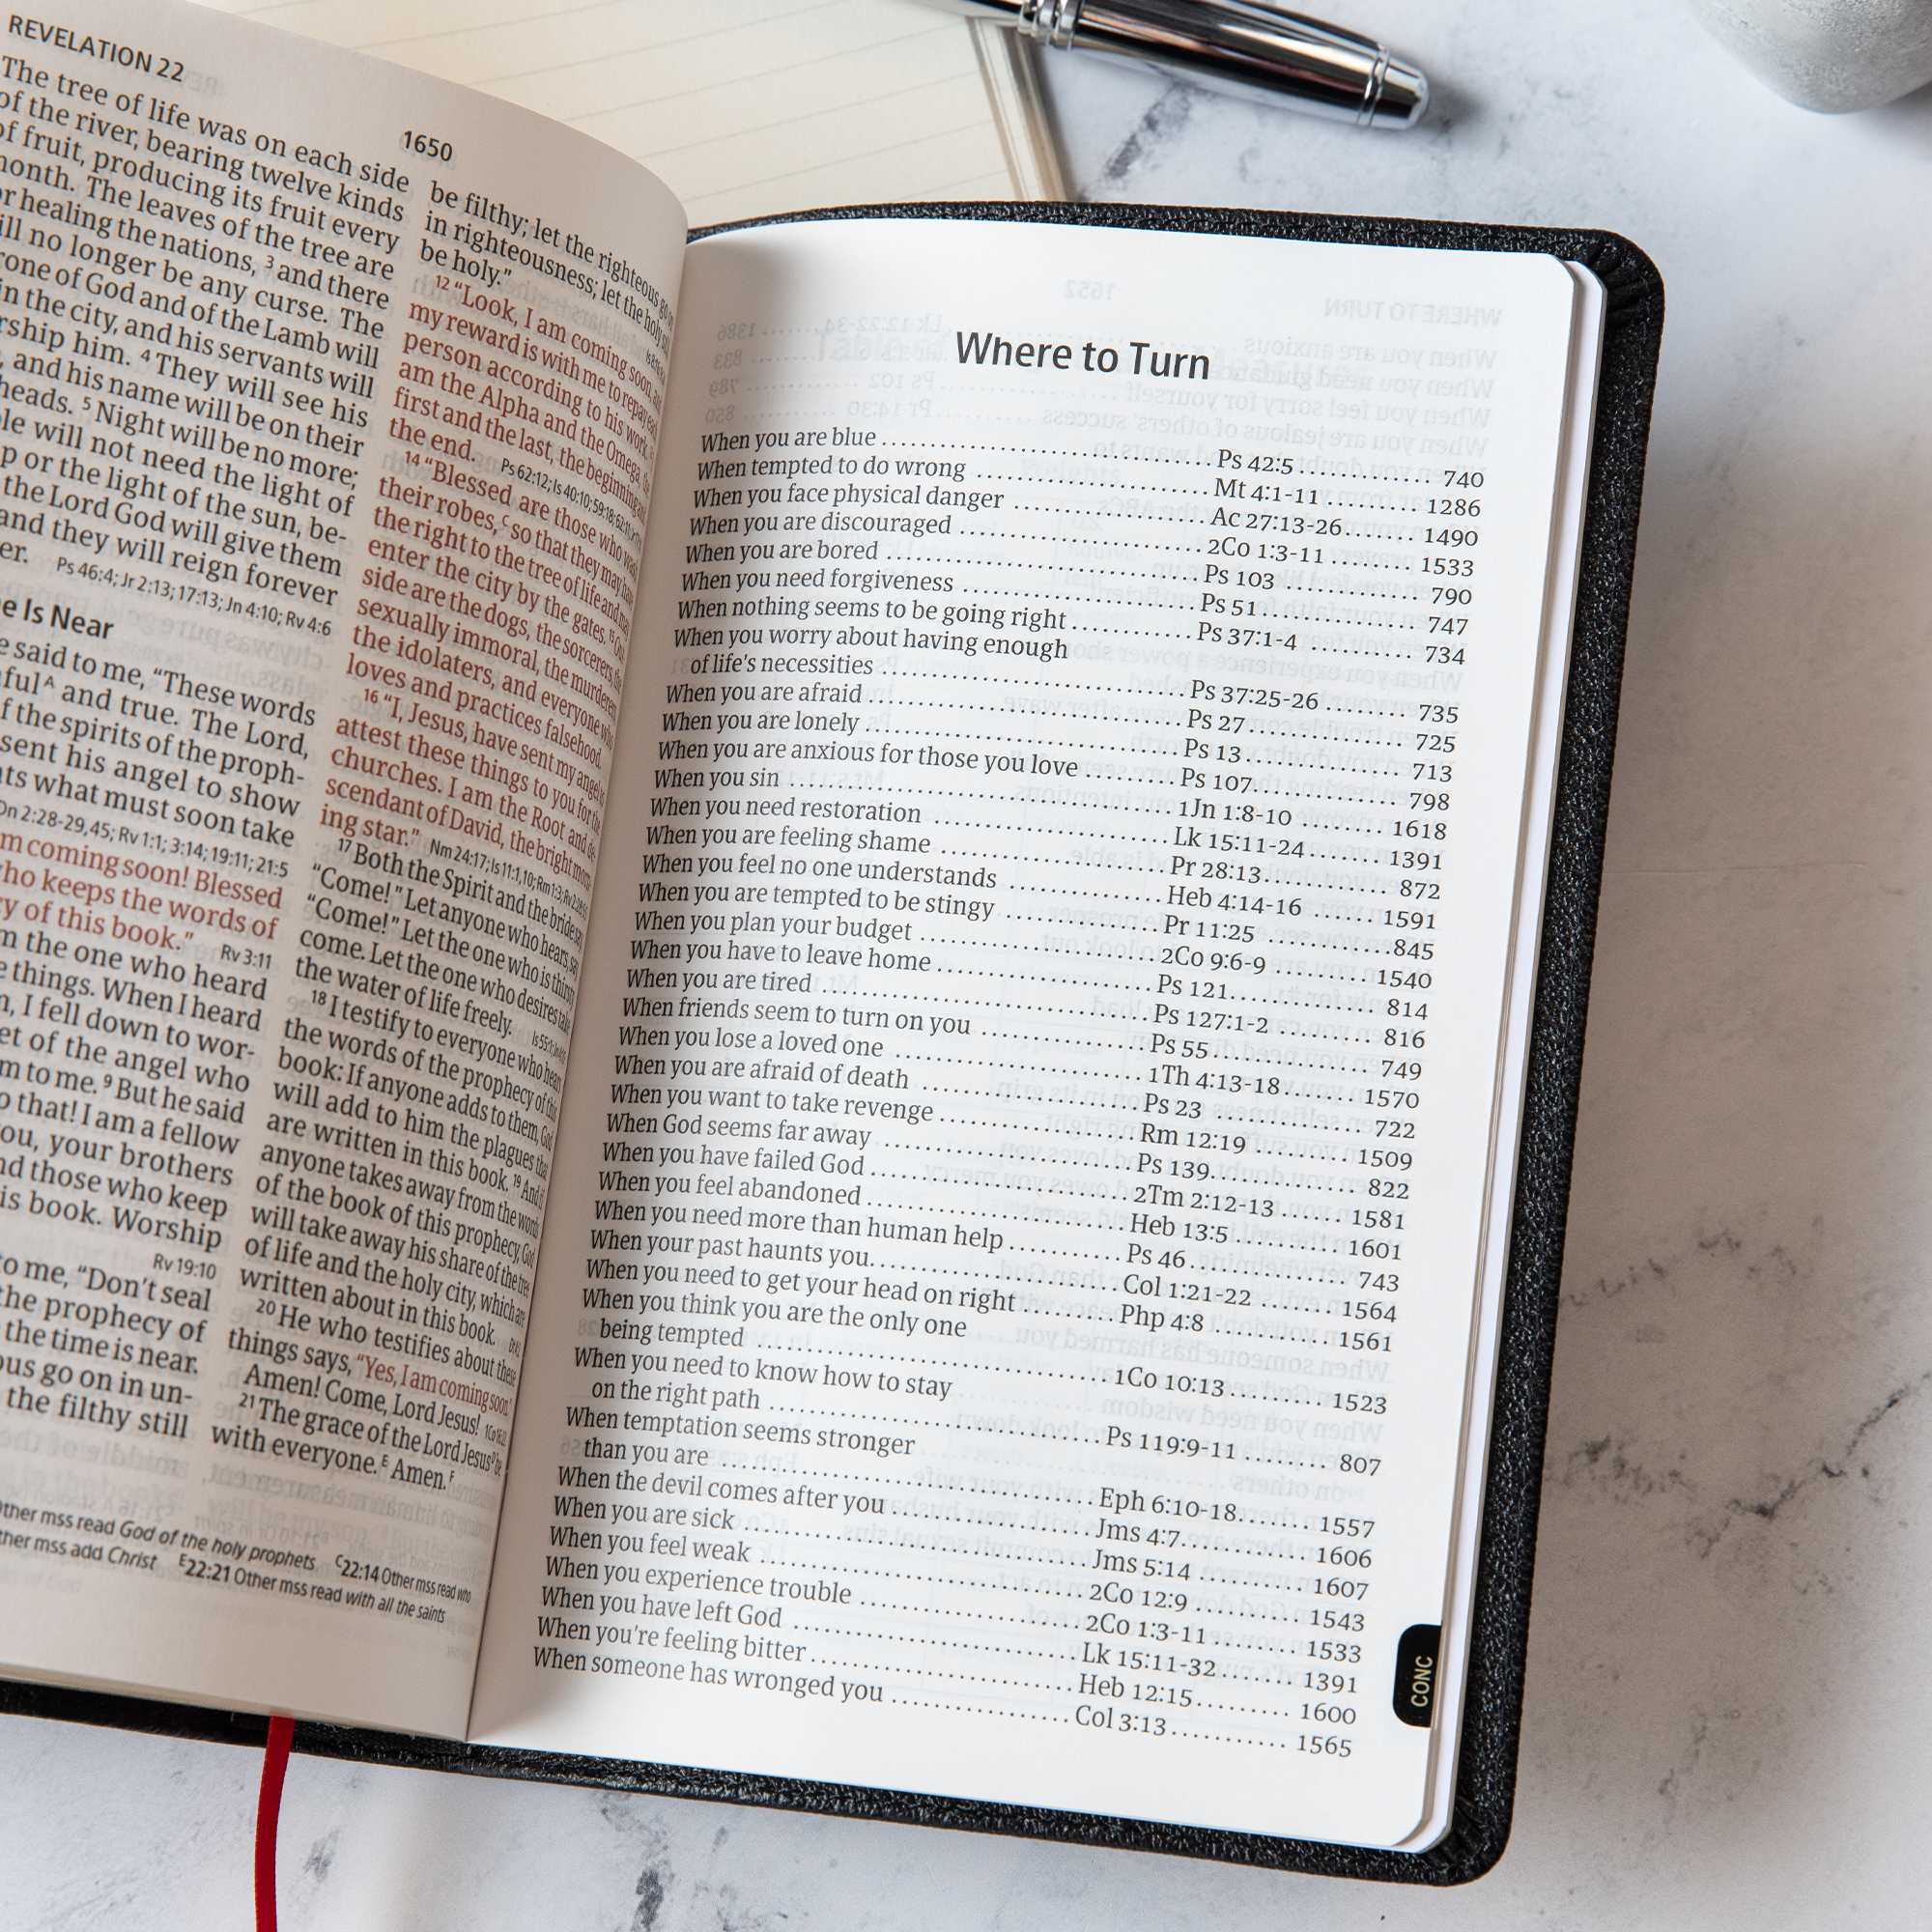 REVELATION 22
1650
The tree of life was on each side
of the river, bearing twelve kinds
of fruit, producing its fruit every
month. The leaves of the tree are
for healing the nations, 3 and there
will no longer be any curse. The
throne of God and of the Lamb will
in the city, and his servants will
worship him. 4 They will see his
, and his name will be on their
heads. 5 Night will be no more;
will not need the light of
or the light of the sun, be-
the Lord God will give them
and they will reign forever
er. Ps 46:4; Jr 2:13; 17:13; Jn 4:10; Rv 4:6
e Is Near
said to me, “These words
ful A and true. The Lord,
f the spirits of the proph-
sent his angel to show
what must soon take
Dn 2:28-29,45; Rv 1:1; 3:14; 19:11; 21:5
m coming soon! Blessed
who keeps the words of
of this book.” Rv 3:11
the one who heard
things. When I heard
, I fell down to wor-
et of the angel who
m to me. 9 But he said
that! I am a fellow
you, your brothers
nd those who keep
is book. Worship
Rv 19:10
to me, “Don’t seal
the prophecy of
the time is near.
ous go on in un-
the filthy still
be filthy; let the righteous go on
in righteousness; let the holy still
be holy.”
12 “Look, I am coming soon, and
my reward is with me to repay each
person according to his work. 13 I
am the Alpha and the Omega, the
first and the last, the beginning and
the end. Ps 62:12; Is 40:10; 59:18; 62:11
14 “Blessed are those who wash
their robes, C so that they may have
the right to the tree of life and may
enter the city by the gates. 15 Out-
side are the dogs, the sorcerers, the
sexually immoral, the murderers,
the idolaters, and everyone who
loves and practices falsehood.
16 “I, Jesus, have sent my angel to
attest these things to you for the
churches. I am the Root and de-
scendant of David, the bright morn-
ing star.” Nm 24:17; Is 11:1,10; Rm 1:3; Rv 2:28
17 Both the Spirit and the bride say,
“Come!” Let anyone who hears, say,
“Come!” Let the one who is thirsty
come. Let the one who desires take
the water of life freely.
18 I testify to everyone who hears
the words of the prophecy of this
book: If anyone adds to them, God
will add to him the plagues that
are written in this book. 19 And if
anyone takes away from the words
of the book of this prophecy, God
will take away his share of the tree
of life and the holy city, which are
written about in this book.
20 He who testifies about these
things says, “Yes, I am coming soon.”
Amen! Come, Lord Jesus! 1Co 16:22
21 The grace of the Lord Jesus D be
with everyone. E Amen. F
Other mss read God of the holy prophets C 22:14 Other mss read who
Other mss add Christ E 22:21 Other mss read with all the saints
Where to Turn
When you are blue Ps 42:5 740
When tempted to do wrong Mt 4:1-11 1286
When you face physical danger Ac 27:13-26 1490
When you are discouraged 2Co 1:3-11 1533
When you are bored Ps 103 790
When you need forgiveness Ps 51 747
When nothing seems to be going right Ps 37:1-4 734
When you worry about having enough
of life’s necessities Ps 37:25-26 735
When you are afraid Ps 27 725
When you are lonely Ps 13 713
When you are anxious for those you love Ps 107 798
When you sin 1Jn 1:8-10 1618
When you need restoration Lk 15:11-24 1391
When you are feeling shame Pr 28:13 872
When you feel no one understands Heb 4:14-16 1591
When you are tempted to be stingy Pr 11:25 845
When you plan your budget 2Co 9:6-9 1540
When you have to leave home Ps 121 814
When you are tired Ps 127:1-2 816
When friends seem to turn on you Ps 55 749
When you lose a loved one 1Th 4:13-18 1570
When you are afraid of death Ps 23 722
When you want to take revenge Rm 12:19 1509
When God seems far away Ps 139 822
When you have failed God 2Tm 2:12-13 1581
When you feel abandoned Heb 13:5 1601
When you need more than human help Ps 46 743
When your past haunts you Col 1:21-22 1564
When you need to get your head on right Php 4:8 1561
When you think you are the only one
being tempted 1Co 10:13 1523
When you need to know how to stay
on the right path Ps 119:9-11 807
When temptation seems stronger
than you are Eph 6:10-18 1557
When the devil comes after you Jms 4:7 1606
When you are sick Jms 5:14 1607
When you feel weak 2Co 12:9 1543
When you experience trouble 2Co 1:3-11 1533
When you have left God Lk 15:11-32 1391
When you’re feeling bitter Heb 12:15 1600
When someone has wronged you Col 3:13 1565
CONC